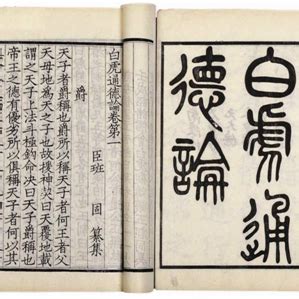 白虎通
德論
白虎通德論卷第一
臣班 固 纂集
爵
天子者爵稱也爵所以稱天子者何王者父
天母地為天之子也故援神契曰天覆地載
謂之天子上法斗極鉤命決曰天子爵稱也
帝王之德有優劣所以俱稱天子者何以其